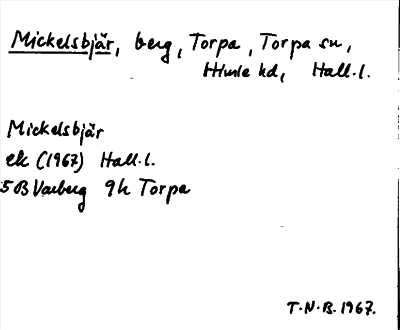 Mickelsbjär, berg, Torpa, Torpa sn,
Himle hd, Hall.l.
Mickelsbjär
ek (1967) Hall.l.
5B Varberg 9h Torpa
T.N.B. 1967.